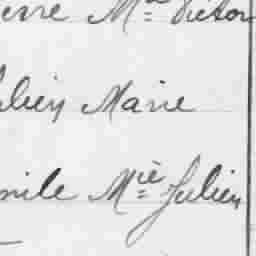 erre Mie Victor
ulien Marie
mile Mie Julien